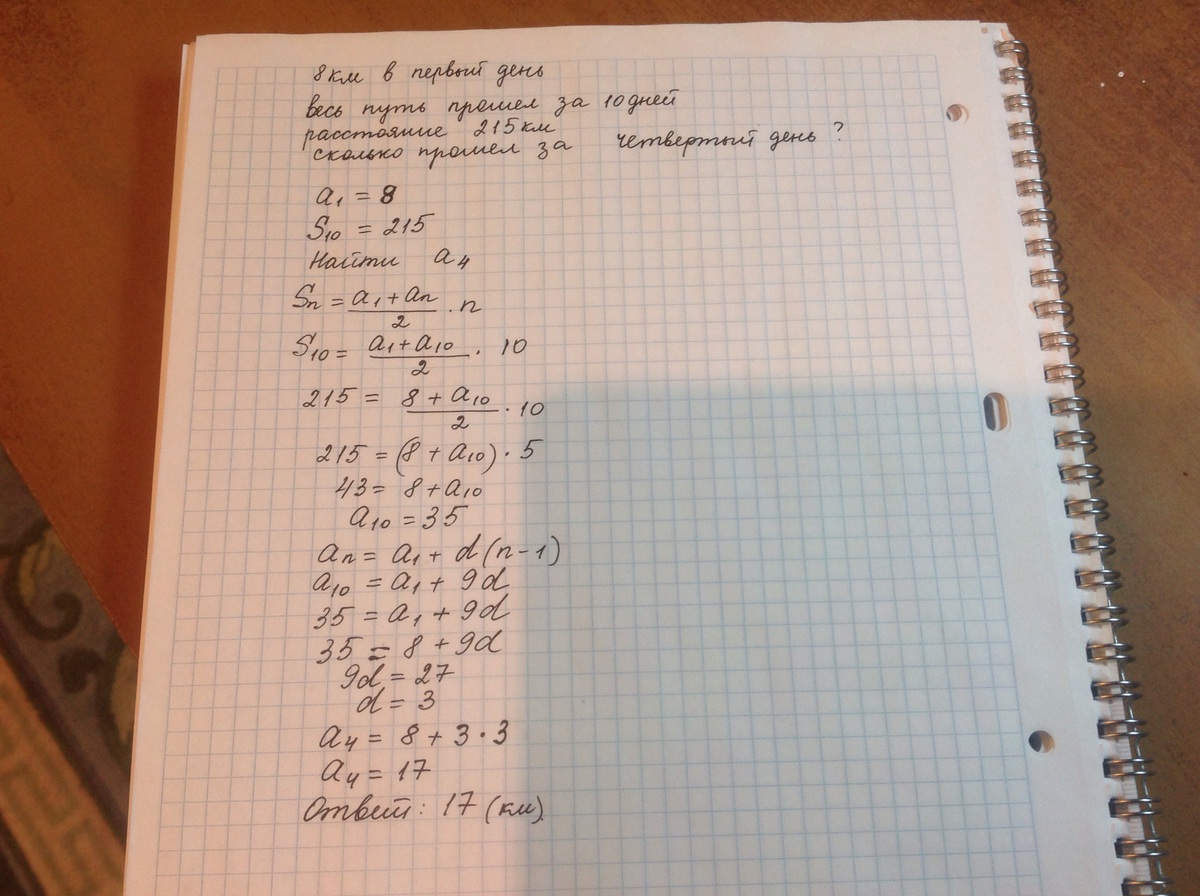 8 км в первый день
весь путь прошел за 10 дней
расстояние 215 км
сколько прошел за четвертый день?
a₁ = 8
S₁₀ = 215
Найти a₄
Sₙ = (a₁ + aₙ)/2 · n
S₁₀ = (a₁ + a₁₀)/2 · 10
215 = (8 + a₁₀)/2 · 10
215 = (8 + a₁₀) · 5
43 = 8 + a₁₀
a₁₀ = 35
aₙ = a₁ + d(n - 1)
a₁₀ = a₁ + 9d
35 = a₁ + 9d
35 = 8 + 9d
9d = 27
d = 3
a₄ = 8 + 3 · 3
a₄ = 17
Ответ: 17 (км)